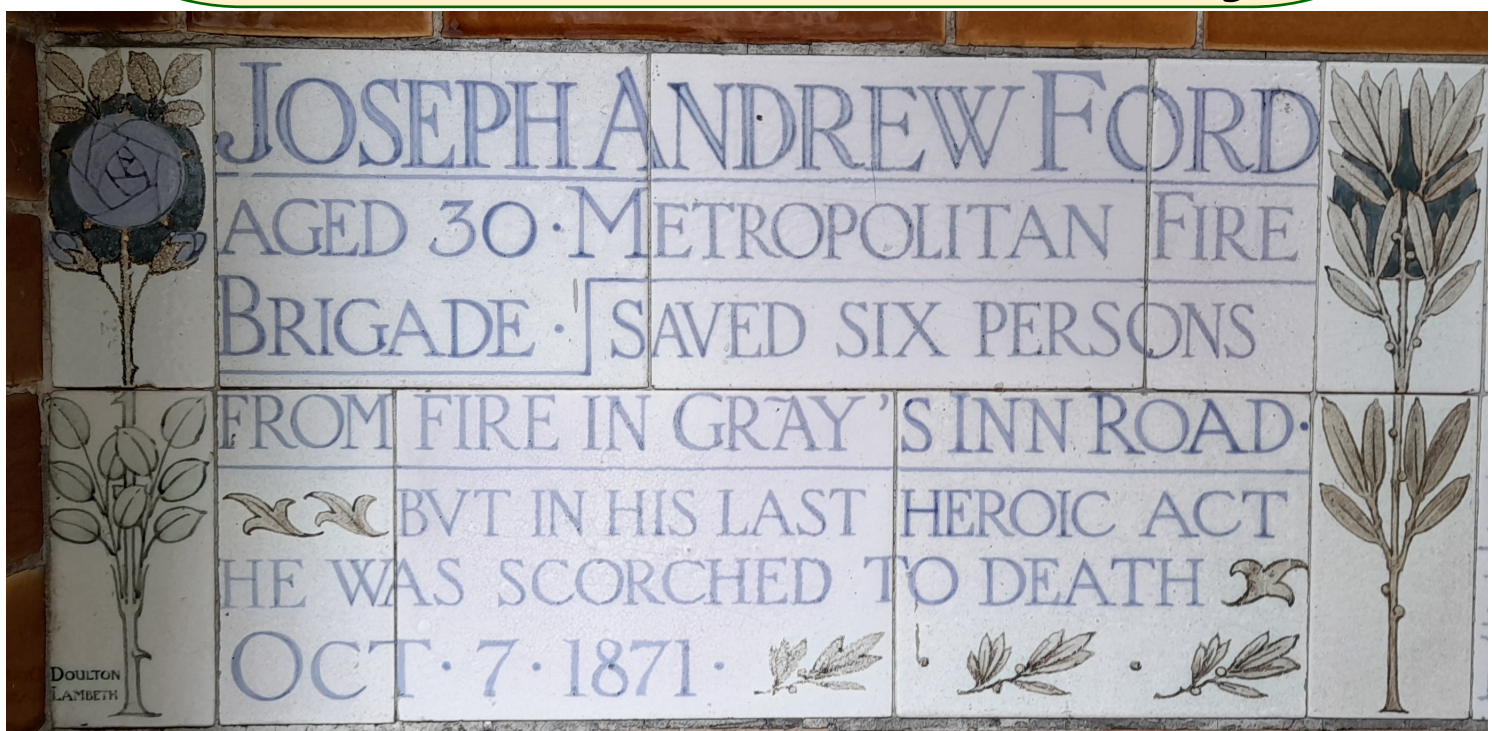 JOSEPH ANDREW FORD
AGED 30 · METROPOLITAN FIRE
BRIGADE · SAVED SIX PERSONS
FROM FIRE IN GRAY'S INN ROAD ·
BVT IN HIS LAST HEROIC ACT
HE WAS SCORCHED TO DEATH
OCT · 7 · 1871 ·
DOULTON
LAMBETH